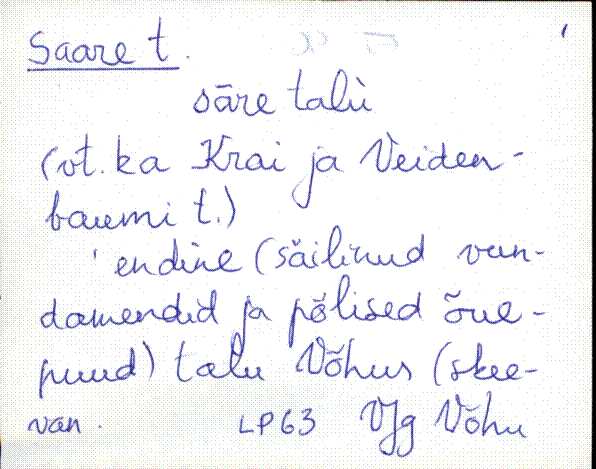 Saare t.
sāre talù
(vt. ka Krai ja Veiden-
baumi t.)
'endine (säilinud vun-
damendid ja põlised õue-
puud) talu Võhus (skee-
van. LP63 VJg Võhu